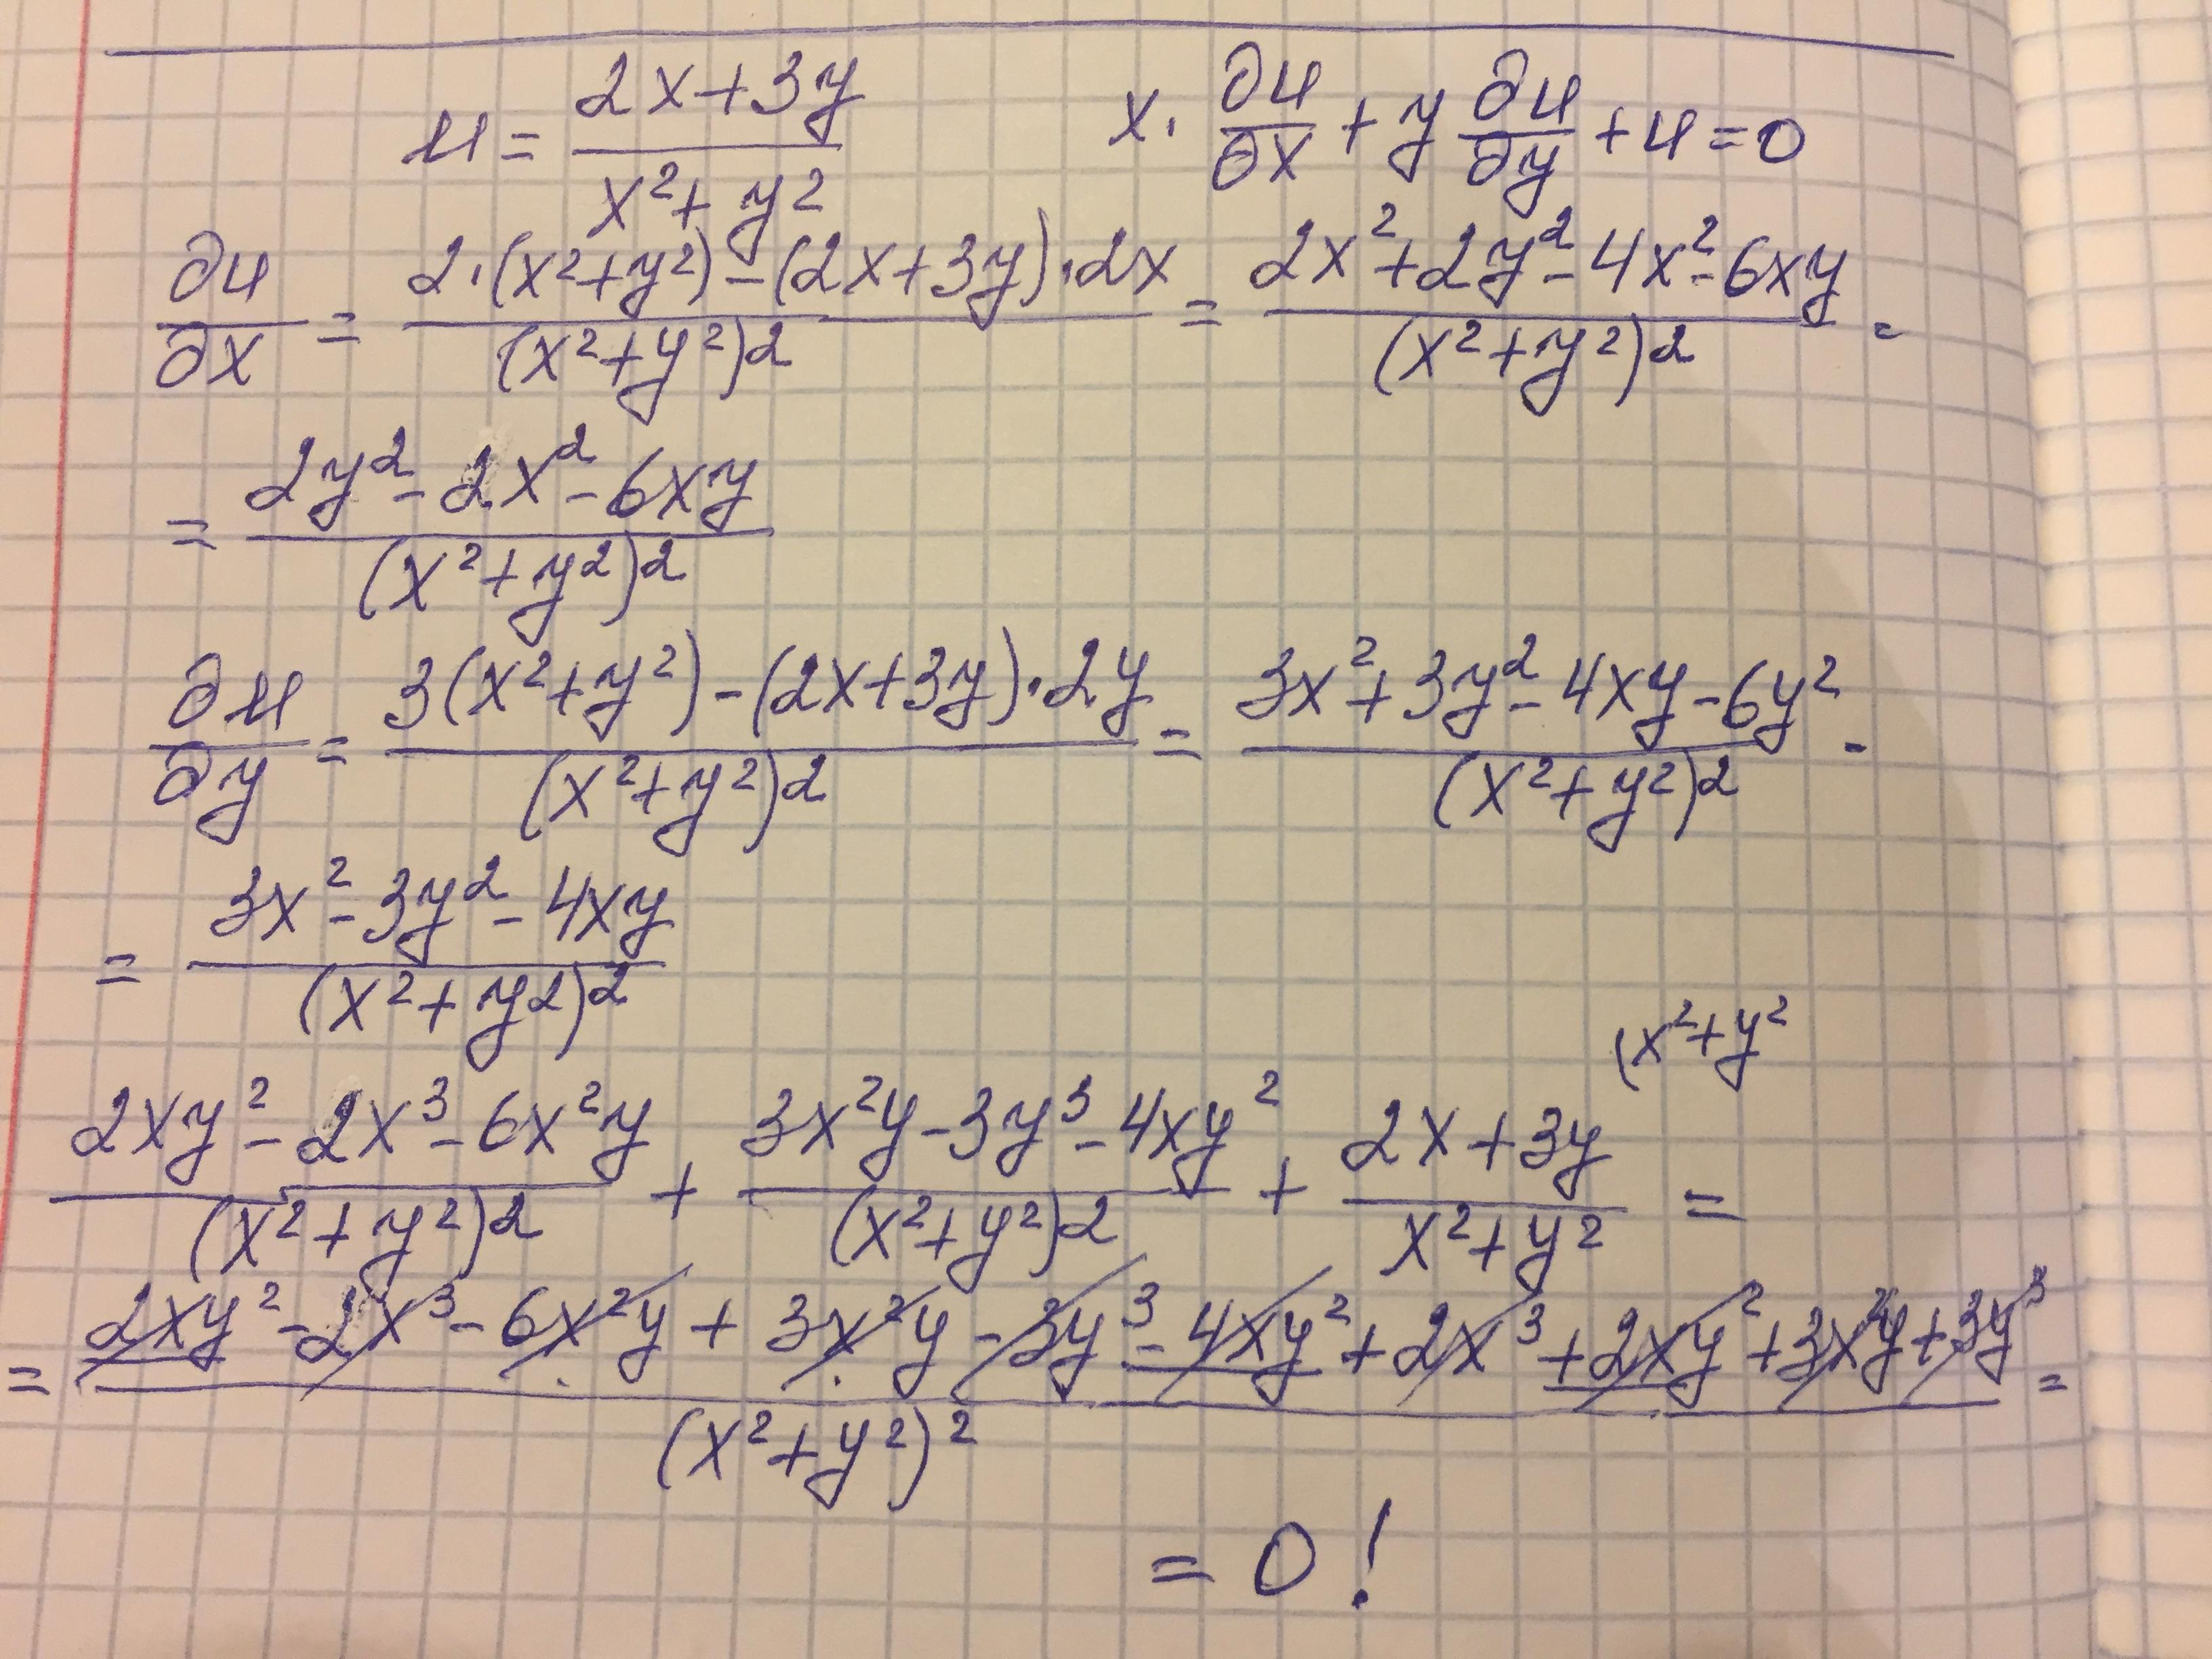 u = (2x+3y)/(x²+y²)    x · ∂u/∂x + y ∂u/∂y + u = 0
∂u/∂x = (2·(x²+y²) − (2x+3y)·2x)/(x²+y²)² = (2x²+2y²−4x²−6xy)/(x²+y²)² =
= (2y²−2x²−6xy)/(x²+y²)²
∂u/∂y = (3(x²+y²)−(2x+3y)·2y)/(x²+y²)² = (3x²+3y²−4xy−6y²)/(x²+y²)² =
= (3x²−3y²−4xy)/(x²+y²)²
(x²+y²
(2xy²−2x³−6x²y)/(x²+y²)² + (3x²y−3y³−4xy²)/(x²+y²)² + (2x+3y)/(x²+y²) =
= (2xy²−2x³−6x²y+3x²y−3y³−4xy²+2x³+2xy²+3x²y+3y³)/(x²+y²)² =
= 0!